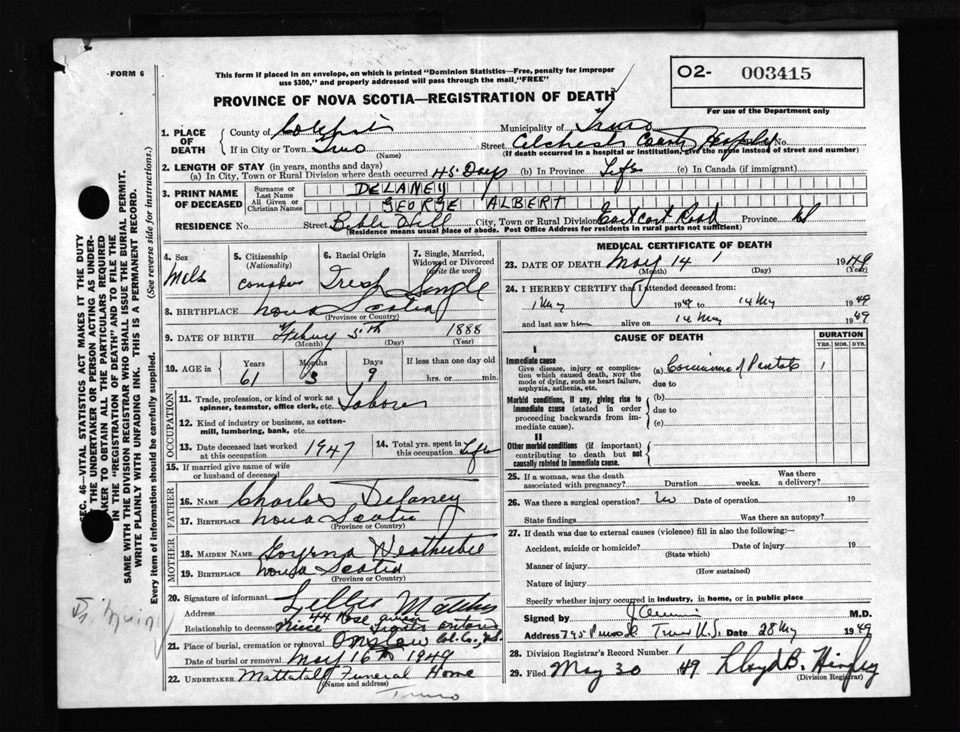 FORM 6
This form if placed in an envelope, on which is printed "Dominion Statistics—Free, penalty for improper
use $300," and properly addressed will pass through the mail "FREE"
O2- 003415
For use of the Department only
PROVINCE OF NOVA SCOTIA—REGISTRATION OF DEATH
1. PLACE OF DEATH
County of
Municipality of Truro
If in City or Town
(Name)
Street Colchester County Hospital No.
(If death occurred in a hospital or institution, give the name instead of street and number)
2. LENGTH OF STAY (in years, months and days)
(a) In City, Town or Rural Division where death occurred 45 Days (b) In Province Life (c) In Canada (if immigrant)
3. PRINT NAME OF DECEASED
Surname or Last Name DELANEY
All Given or Christian Names GEORGE ALBERT
RESIDENCE No. Street Bible Hill City, Town or Rural Division Road Province
(Residence means usual place of abode. Post Office Address for residents in rural parts not sufficient)
4. Sex
5. Citizenship (Nationality)
6. Racial Origin
7. Single, Married, Widowed or Divorced (write the word) Single
8. BIRTHPLACE Nova Scotia
(Province or Country)
9. DATE OF BIRTH 5th 1888
(Month) (Day) (Year)
10. AGE in Years Months Days If less than one day old
61 3 9 hrs. or min.
OCCUPATION
11. Trade, profession, or kind of work as spinner, teamster, office clerk, etc. Laborer
12. Kind of industry or business, as cotton-mill, lumbering, bank, etc.
13. Date deceased last worked at this occupation 1947
14. Total yrs. spent in this occupation Life
15. If married give name of wife or husband of deceased
FATHER
16. NAME Charles Delaney
17. BIRTHPLACE Nova Scotia
(Province or Country)
MOTHER
18. MAIDEN NAME
19. BIRTHPLACE Nova Scotia
(Province or Country)
20. Signature of informant
Address 44 Rose
Relationship to deceased Niece
21. Place of burial, cremation or removal Onslow Col. Co., N.S.
Date of burial or removal May 16th 1949
22. UNDERTAKER Mattatall Funeral Home
(Name and address)
Truro
MEDICAL CERTIFICATE OF DEATH
23. DATE OF DEATH May 14 1949
(Month) (Day) (Year)
24. I HEREBY CERTIFY that I attended deceased from:
1 May 19 to 14 May 1949
and last saw him alive on 14 May 1949
CAUSE OF DEATH
DURATION
YRS. MOS. DYS.
I
Immediate cause
Give disease, injury or complication which caused death, not the mode of dying, such as heart failure, asphyxia, asthenia, etc.
(a) Carcinoma of 1
due to
Morbid conditions, if any, giving rise to immediate cause (stated in order proceeding backwards from immediate cause).
(b)
due to
(c)
II
Other morbid conditions (if important) contributing to death but not causally related to immediate cause.
25. If a woman, was the death associated with pregnancy? Duration weeks. Was there a delivery?
26. Was there a surgical operation? No Date of operation 19
State findings Was there an autopsy?
27. If death was due to external causes (violence) fill in also the following:—
Accident, suicide or homicide? Date of injury 19
(State which)
Manner of injury
(How sustained)
Nature of injury
Specify whether injury occurred in industry, in home, or in public place
Signed by M.D.
Address Truro N.S. Date 28 May 1949
28. Division Registrar's Record Number
29. Filed May 30 49 Lloyd B.
(Division Registrar)
SEC. 46—VITAL STATISTICS ACT MAKES IT THE DUTY
OF THE UNDERTAKER OR PERSON ACTING AS UNDER-
TAKER TO OBTAIN ALL THE PARTICULARS REQUIRED
IN THE "REGISTRATION OF DEATH" AND TO FILE THE
SAME WITH THE DIVISION REGISTRAR WHO SHALL ISSUE THE BURIAL PERMIT.
WRITE PLAINLY WITH UNFADING INK. THIS IS A PERMANENT RECORD.
Every item of information should be carefully supplied. (See reverse side for instructions.)